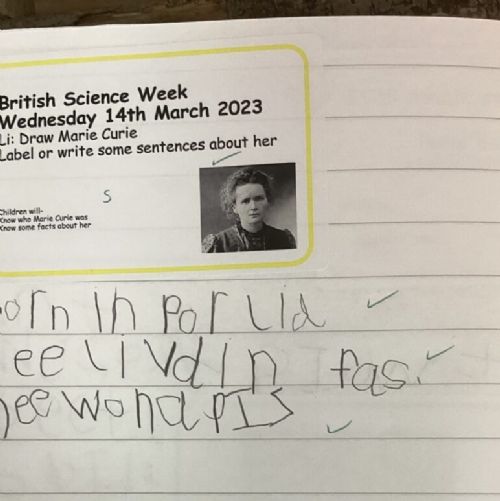 British Science Week
Wednesday 14th March 2023
Li: Draw Marie Curie
Label or write some sentences about her
S
Children will-
Know who Marie Curie was
Know some facts about her
orn in Por lid
ee livd in fas.
hee wond a PIS